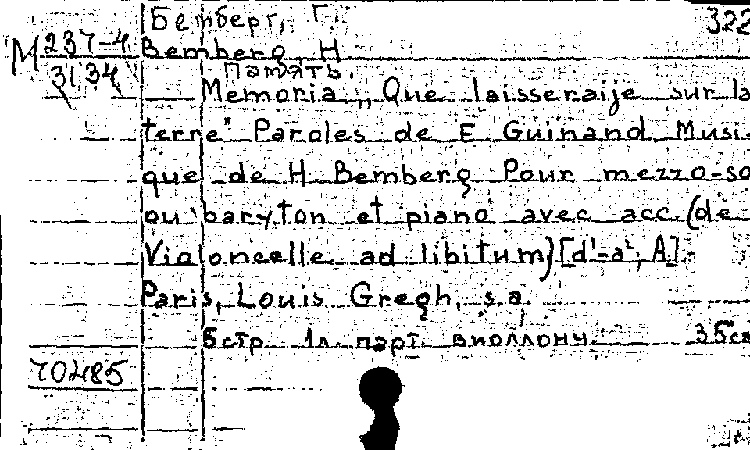 Бемберг, Г. 322
М 237-4 Bemberg H
3134 Память.
Memoria „Que laisseraije sur la
terre" Paroles de E Guinand Musi-
que de H Bemberg Pour mezzo-so
ou baryton et piano avec acc (de
Violoncelle ad libitum) [d'-a², A].
Paris, Louis Gregh, s.a.
5стр 1л. парт. виолонч. 35см
70485